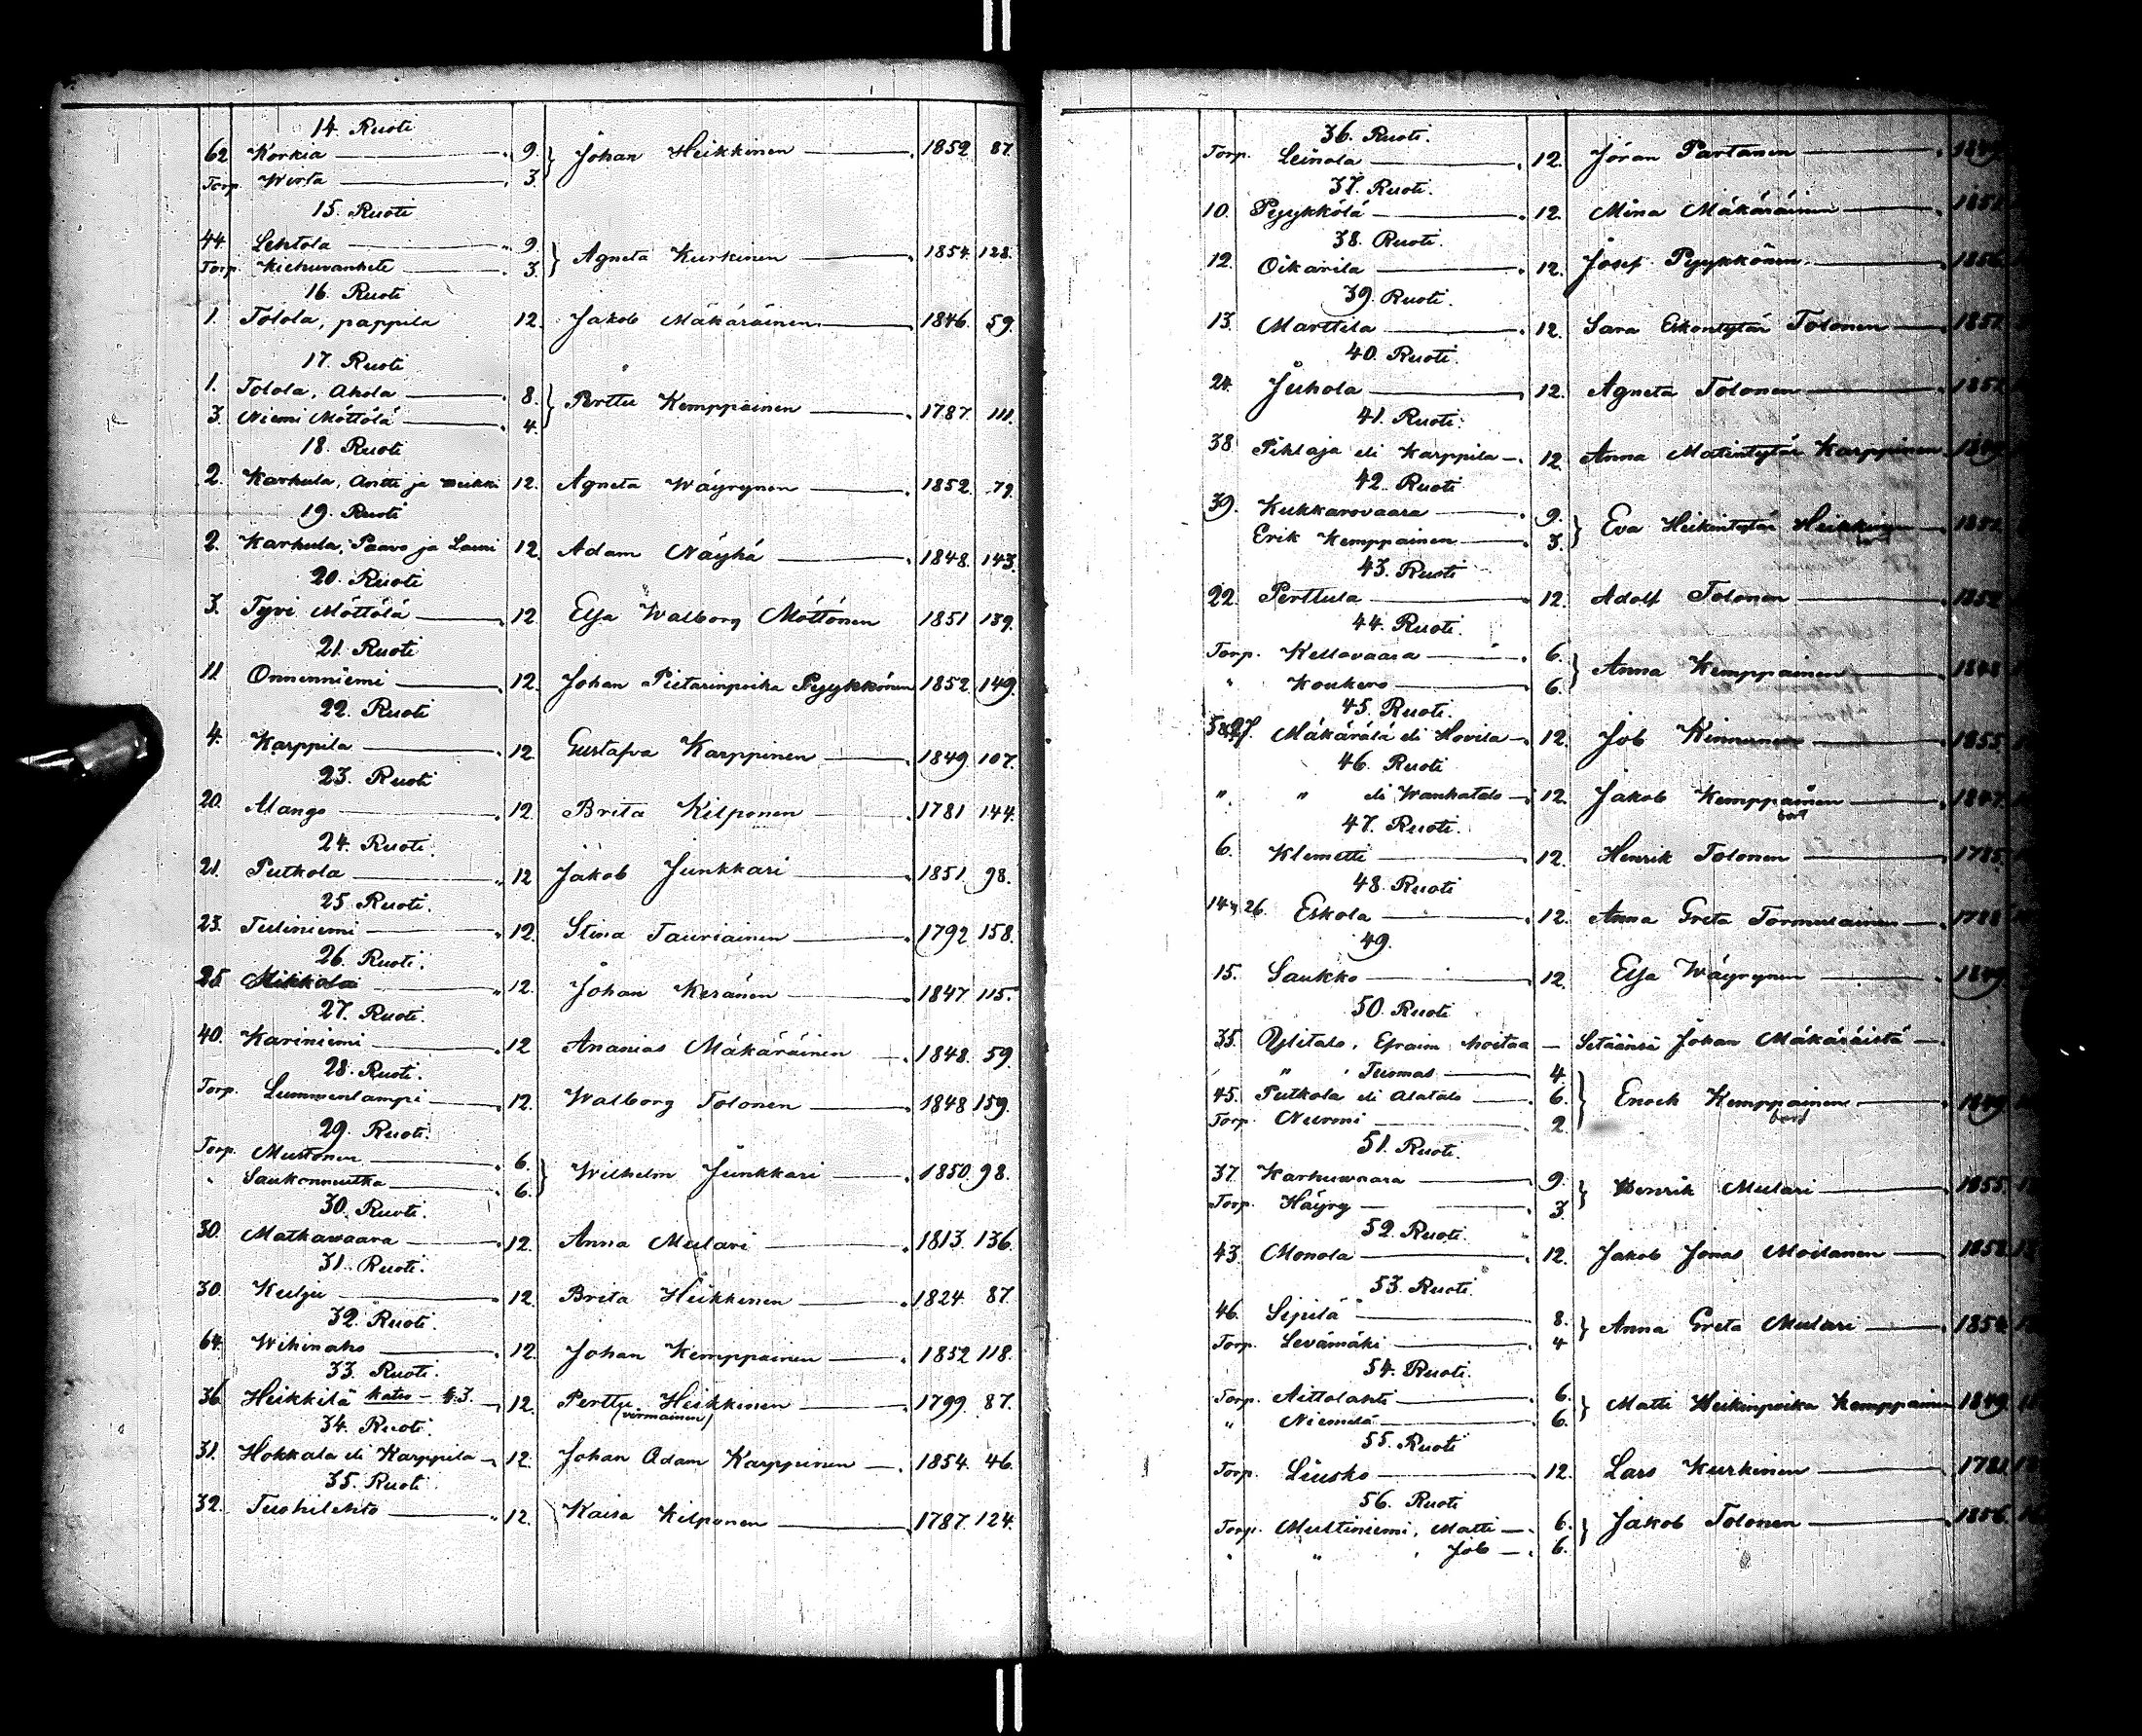 14. Ruoti
62 Korkia 9. } Johan Heikkinen 1852 87.
Torp. Wirta 3.
15. Ruoti
44. Lehtola 9. } Agneta Kurkinen 1854. 128.
Torp. Kiehuvanhete 3.
16. Ruoti
1. Tolola, pappila 12. Jakob Mäkäräinen 1846. 59.
17. Ruoti
1. Tolola, Ahola 8. } Perttu Kemppainen 1787. 111.
3. Niemi Möttölä 4.
18. Ruoti
2. Karhula, Antti ja Heikki 12. Agneta Wäyrynen 1852. 79.
19. Ruoti
2. Karhula, Paavo ja Lauri 12. Adam Näyhä 1848. 143.
20. Ruoti
3. Tyvi Möttölä 12 Elsa Walborg Möttönen 1851 139.
21. Ruoti
11 Onnenniemi 12. Johan Pietarinpoika Pyykkönen 1852. 149.
22. Ruoti
4. Karppila 12. Gustafva Karppinen 1849 107.
23. Ruoti
20. Mango 12. Brita Kilponen 1781 144.
24. Ruoti.
21. Putkola 12 Jakob Junkkari 1851. 98.
25. Ruoti.
23. Tuliniemi 12. Stina Tauriainen 1792 158.
26. Ruoti.
25. Mikkola 12. Johan Keränen 1847 115.
27. Ruoti.
40. Kariniemi 12 Ananias Mäkäräinen 1848. 59.
28. Ruoti.
Torp. Lummenlampi 12. Walborg Tolonen 1848 159.
29. Ruoti.
Torp. Mustonen 6. } Wilhelm Junkkari 1850. 98.
" Saukonmutka 6.
30. Ruoti.
30. Matkawaara 12. Anna Mulari 1813. 136.
31. Ruoti.
30. Kulju 12. Brita Heikkinen 1824. 87.
32. Ruoti.
64. Wihinaho 12. Johan Kemppainen 1852 118.
33. Ruoti.
36 Heikkilä katso 12. Perttu Heikkinen 1799. 87.
34. Ruoti.
31. Hokkala eli Karppila 12. Johan Adam Karppinen 1854. 46.
35. Ruoti.
32. Tuohilehto 12. Kaisa Kilponen 1787. 124.
36. Ruoti.
Torp. Leinola 12. Jöran Partanen
37. Ruoti.
10. Pyykkölä 12. Mina Mäkäräinen
38. Ruoti.
12. Oikarila 12. Josef Pyykkönen
39. Ruoti.
13. Marttila 12. Sara Eskontytär Tolonen 1851.
40. Ruoti.
24. Juhola 12. Agneta Tolonen
41. Ruoti.
38. Pihlaja eli Karppila 12. Anna Matintytär Karppinen 1849
42. Ruoti
39. Kukkarovaara 9. } Eva Heikintytär Heikkinen
Erik Kemppainen 3.
43. Ruoti
22. Perttula 12. Adolf Tolonen 1852
44. Ruoti.
Torp. Kellovaara 6. } Anna Kemppainen 1848
" Koukero 6.
45. Ruoti.
Mäkärälä eli Hovila 12. Job Kinnunen 1855.
46. Ruoti
" " eli Wanhatalo 12. Jakob Kemppainen 1847.
bort
47. Ruoti.
6. Klemetti 12. Henrik Tolonen 1785.
48. Ruoti
14 26. Eskola 12. Anna Greta Tormulainen 1788
49.
15. Saukko 12. Elsa Wäyrynen 1849
50. Ruoti
35. Ylitalo, Efraim hoitaa — Setäänsä Johan Mäkäräistä
" Tuomas 4.
45. Putkola eli Alatalo 6. } Enoch Kemppainen 1849
bort
Torp. Nurmi 2.
51. Ruoti.
37. Karhuvaara 9. } Henrik Mulari 1855.
Torp. Häyry 3.
52. Ruoti.
43. Monola 12. Jakob Jonas Moilanen 1852
53. Ruoti.
46. Sipilä 8. } Anna Greta Mulari 1854
Torp. Levämäki 4
54. Ruoti.
Torp. Aittolahti 6. } Matti Heikinpoika Kemppainen 1849.
" Niemelä 6.
55. Ruoti
Torp. Liusko 12. Lars Kurkinen
56. Ruoti
Torp. Multiniemi, Matti 6. } Jakob Tolonen 1856.
" " , Job 6.